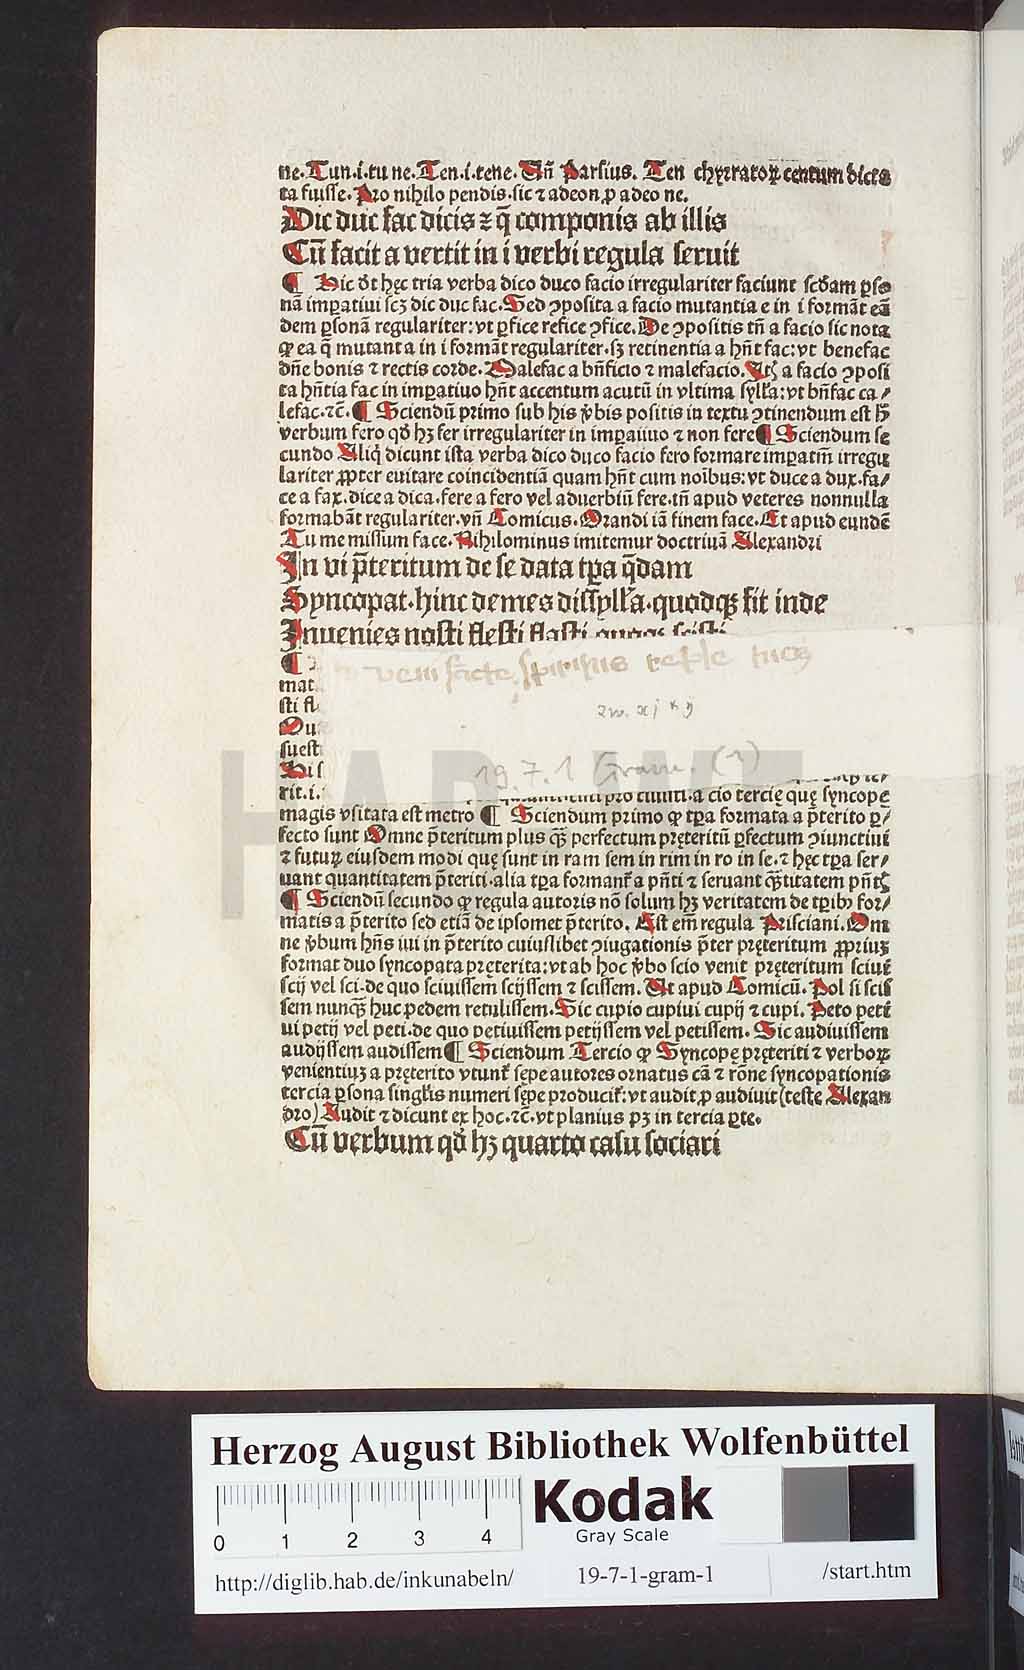 ne. Tun.i.tu ne. Ten.i.tene. Uñ Parsius. Ten chyrratoꝝ centum dicta
ta fuisse. Pro nihilo pendis.sic ⁊ adeon ꝓ adeo ne.
Dic duc fac dicis ⁊ q̃ componis ab illis
Cũ facit a vertit in i verbi regula seruit
¶ Hic ꝺt hęc tria verba dico duco facio irregulariter faciunt scďam ꝑso
nã imꝑatiui scꝫ dic duc fac. Sed ꝯposita a facio mutantia e in i formãt eã
dem ꝑsonã regulariter: vt ꝑfice refice ꝯfice. De ꝯpositis tñ a facio sic nota
ꝙ ea q̃ mutant a in i formãt regulariter.sꝫ retinentia a hñt fac: vt benefac
dñe bonis ⁊ rectis corde. Malefac a bñficio ⁊ malefacio. Itꝫ a facio ꝯposi
ta hñtia fac in imꝑatiuo hñt accentum acutũ in vltima sylľa: vt bñfac ca/
lefac.⁊c̃. ¶ Sciendũ primo sub his v̉bis positis in textu ꝯtinendum est h̃
verbum fero qď hꝫ fer irregulariter in imꝑatiuo ⁊ non fere ¶ Sciendum se
cundo Aliq̃ dicunt ista verba dico duco facio fero formare imꝑatiũ irregu
lariter ꝓpter euitare coincidentiã quam hñt cum noĩbus: vt duce a dux.fa/
ce a fax.dice a dica.fere a fero vel aduerbiũ fere.tñ apud veteres nonnulla
formabãt regulariter.vñ Comicus. Orandi iã finem face. Et apud eundẽ
Tu me missum face. Nihilominus imitemur doctrinã Alexandri
In vi p̃teritum de se data tp̃a q̃dam
Syncopat.hinc demes dissylľa.quodqꝫ fit inde
Inuenies nosti flesti flasti quoqꝫ scisti
¶
veni sancte spiritus reple tuoꝝ
mat
sti fl
Du
suest
19.7.1 Gram. (1)
His
rit.i. pro ciuiti.a cio tercię quę syncope
magis vsitata est metro ¶ Sciendum primo ꝙ tp̃a formata a p̃terito ꝑ/
fecto sunt Omne p̃teritum plus qꝫ̃ perfectum pręteritũ ꝑfectum ꝯiunctiui
⁊ futuꝝ eiusdem modi quę sunt in ram sem in rim in ro in se.⁊ hęc tp̃a ser/
uant quantitatem p̃teriti.alia tp̃a formant᷑ a pñti ⁊ seruant qꝫ̃titatem pñtꝫ
¶ Sciendũ secundo ꝙ regula autoris nõ solum hꝫ veritatem de tp̃ibꝫ for/
matis a p̃terito sed etiã de ipsomet p̃terito. Est em̃ regula Prisciani. Om
ne v̉bum hñs iui in p̃terito cuiuslibet ꝯiugationis p̃ter pręteritum ꝓpriuꝫ
format duo syncopata pręterita: vt ab hoc v̉bo scio venit pręteritum sciui
scij vel sci.de quo sciuissem scijssem ⁊ scissem. Et apud Comicũ. Pol si scis
sem nunqꝫ̃ huc pedem retulissem. Sic cupio cupiui cupij ⁊ cupi. Peto peti
ui petij vel peti.de quo petiuissem petijssem vel petissem. Sic audiuissem
audijssem audissem ¶ Sciendum Tercio ꝙ Syncopę pręteriti ⁊ verboꝝ
venientiuꝫ a pręterito vtunt᷑ sępe autores ornatus cã ⁊ rõne syncopationis
tercia ꝑsona singľis numeri sępe producit᷑: vt audit ꝓ audiuit (teste Alexan
dro) Audit ⁊ dicunt ex hoc.⁊c̃.vt planius pꝫ in tercia ꝑte.
Cũ verbum qď hꝫ quarto casu sociari
HAB
Herzog August Bibliothek Wolfenbüttel
0 1 2 3 4
Kodak
Gray Scale
http://diglib.hab.de/inkunabeln/ 19-7-1-gram-1 /start.htm